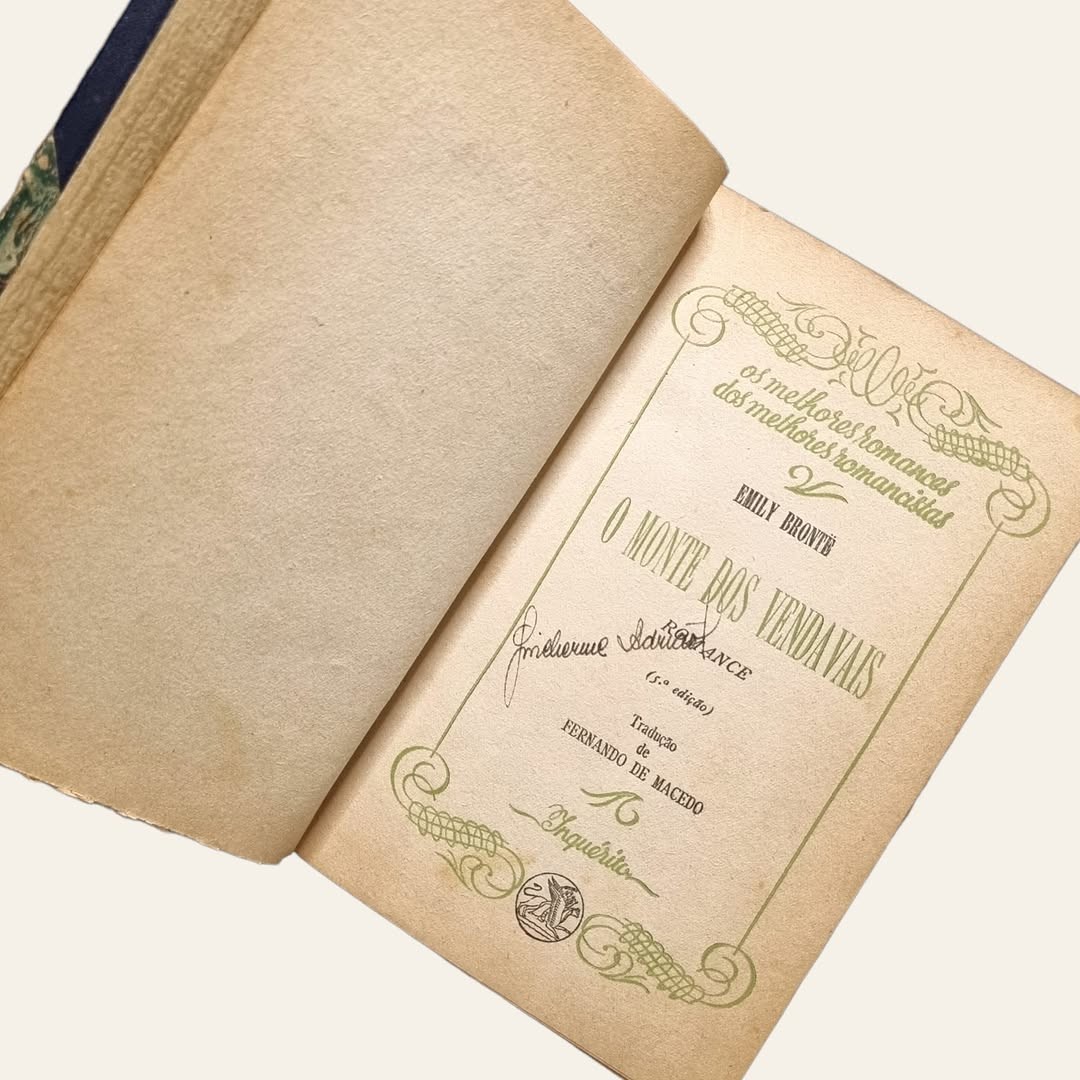 os melhores romances
dos melhores romancistas
EMILY BRONTË
O MONTE DOS VENDAVAIS
ROMANCE
Guilherme
(5.ª edição)
Tradução
de
FERNANDO DE MACEDO
Inquérito